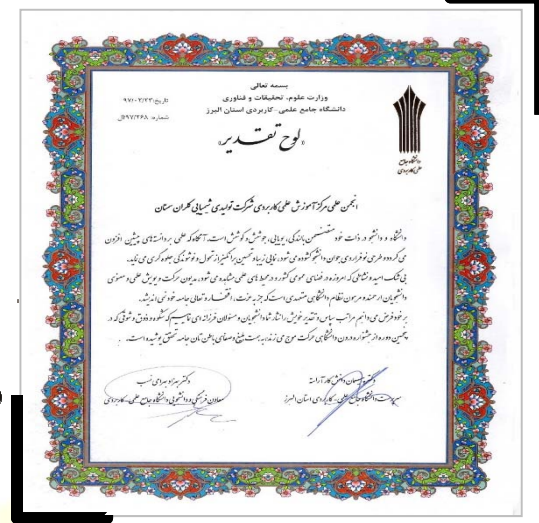 بسمه تعالی
وزارت علوم، تحقیقات و فناوری
دانشگاه جامع علمی-کاربردی استان البرز
تاریخ: ۹۷/۰۳/۲۳
شماره: ۹۷/۲۶۸/ل
«لوح تقدیر»
دانشگاه جامع
علمی کاربردی
انجمن علمی مرکز آموزش علمی کاربردی شرکت تولیدی شیمیایی کلران سمنان
دانشگاه و دانشجو در ذات خود متضمن بالندگی، پویایی، جوشش و کوشش است، آنگاه که علمی بر دانسته‌های پیشین افزون
می گردد و طرحی نو فراروی جوان دانشجو گشوده می شود، نمایی زیبا و تحسین برانگیز از تحول و نوشوندگی جلوه گری می نماید.
بی شک، امید و نشاطی که امروزه در فضای عمومی کشور و در محیط های علمی مشاهده می شود، مدیون حرکت و پویش علمی و معنوی
دانشجویان ارجمند و مرهون نظام دانشگاهی متعهدی است که جز به عزت، اقتدار و تعالی جامعه خود نمی اندیشد.
بر خود فرض می دانیم مراتب سپاس و تقدیر خویش را نثار شما دانشجویان و مسئولان فرزانه ای نماییم که شکوه و ذوق و شوقی که در
پنجمین دوره از جشنواره درون دانشگاهی حرکت موج می زند، به همت بلیغ و صفای باطن تان جامه تحقق پوشیده است.
دکتر
سرپرست دانشگاه جامع علمی-کاربردی استان البرز
دکتر بهزاد بهرامی نسب
معاون فرهنگی و دانشجویی دانشگاه جامع علمی-کاربردی